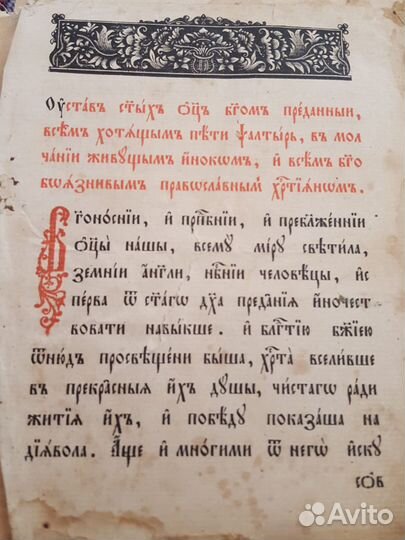 Оуста́въ ст҃ы́хъ ѻ҆ц҃ъ бг҃омъ пре́данныи,
всѣ́мъ хотѧ́щымъ пѣ́ти ѱалты́рь, въ мол
ча́нїи живꙋ́щымъ и҆́нокѡмъ, и҆ всѣ́мъ бг҃о
боѧ́знивымъ правосла́внымъ хрⷭ҇тїѧ́нѡмъ.
Бг҃оно́снїи, и҆ прⷣбнїи, и҆ пребл҃же́ннїи
ѻ҆ц҃ы̀ на́шы, всемꙋ̀ мі́рꙋ свѣти́ла,
зе́мнїи а҆́нг҃ли, нбⷭ҇нїи человѣ́цы, и҆с
пе́рва ѿ ст҃а́гѡ дх҃а преда́нїѧ и҆́ночест
вовати навы́кше. и҆ блгⷣтїю бж҃їею
ѿню́дъ просвѣще́ни бы́ша, хрⷭ҇та̀ всели́вше
въ прекра́сныѧ и҆́хъ дꙋ́шы, чи́стагѡ ра́ди
житїѧ̀ и҆́хъ, и҆ побѣ́дꙋ показа́ша на
дїѧ́вола. А҆́ще и҆ мно́гими ѿ негѡ̀ и҆скꙋ
соѡв
Avito